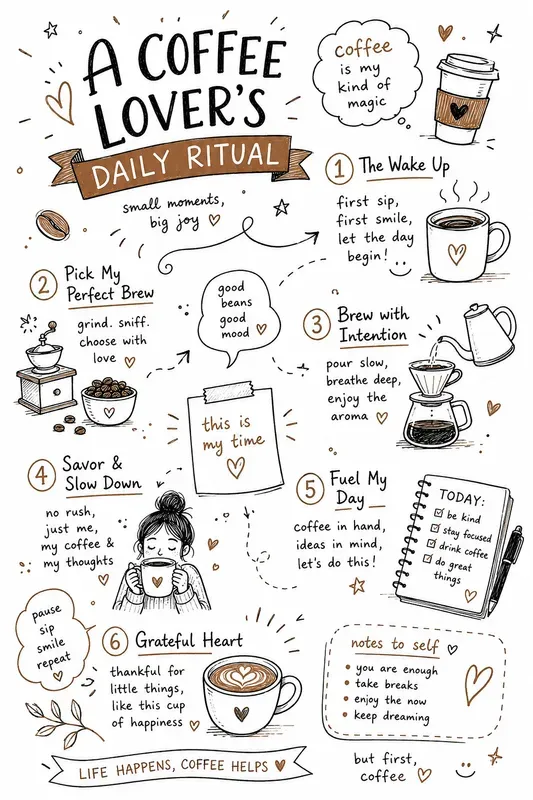 A COFFEE
LOVER'S
DAILY RITUAL
small moments,
big joy
coffee
is my
kind of
magic
1 The Wake Up
first sip,
first smile,
let the day
begin!
2 Pick My
Perfect Brew
grind. sniff.
choose with
love
good
beans
good
mood
3 Brew with
Intention
pour slow,
breathe deep,
enjoy the
aroma
this is
my time
4 Savor &
Slow Down
no rush,
just me,
my coffee &
my thoughts
5 Fuel My
Day
coffee in hand,
ideas in mind,
let's do this!
TODAY:
be kind
stay focused
drink coffee
do great
things
pause
sip
smile
repeat
6 Grateful Heart
thankful for
little things,
like this cup
of happiness
notes to self
• you are enough
• take breaks
• enjoy the now
• keep dreaming
LIFE HAPPENS, COFFEE HELPS
but first,
coffee